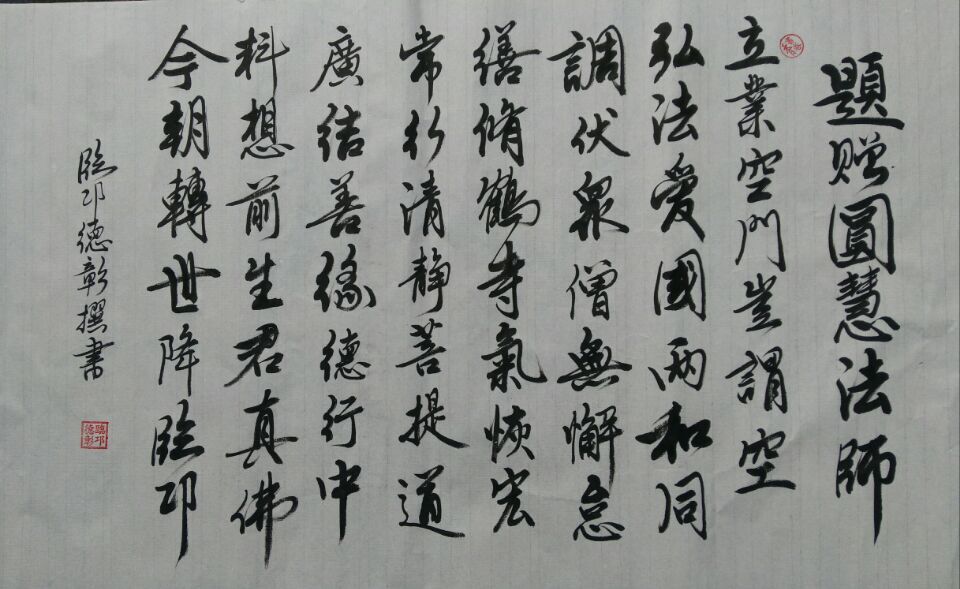 題贈圓慧法師
立業空門豈謂空
弘法愛國兩和同
調伏眾僧無懈怠
繕脩鶴寺氣恢宏
常行清靜菩提道
廣結善緣德行中
料想前生君真佛
今朝轉世降臨邛
臨邛德彰撰書
臨邛德彰